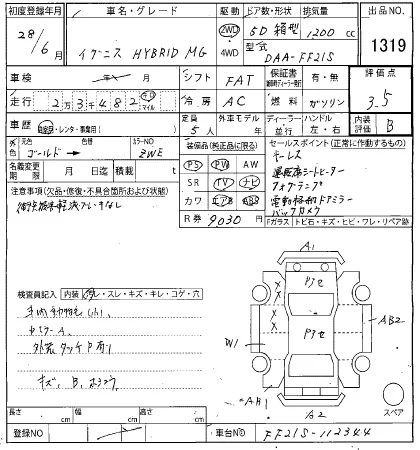 初度登録年月
28/6月
車名・グレード
イグニス HYBRID MG
2WD
4WD
ドア数・形状
5D 箱型
排気量
1200 cc
型式
DAA-FF21S
出品NO.
1319
車検
年 月
シフト
FAT
保証書
有・無
評価点
3.5
走行
2万3千482
キロ
マイル
冷房
AC
燃料
ガソリン
車歴
自家用・レンタ・事業用( )
定員
5人
外車モデル
年
ディーラー
並行
ハンドル
左・右
内装評価
B
外色
元色
ゴールド
色替
カラーNO
ZWE
名義変更期限
月 日
積載
t
装備品(純正品に限る)
PS PW AW
SR TV ナビ
カワ エアB ABS
R券 9030円
セールスポイント(正常に作動するもの)
キーレス
運転席シートヒーター
フォグランプ
電動格納ドアミラー
バックカメラ
注意事項(欠品・修復・不具合箇所および状態)
Fガラス トビ石・キズ・ヒビ・ワレ・リペア跡
検査員記入
内装 汚レ・スレ・キズ・キレ・コゲ・穴
キズ、B、
A1
W1
AB2
AB1
A2
スペア
長さ cm
幅 cm
高さ cm
登録NO
車台NO
FF21S-112344